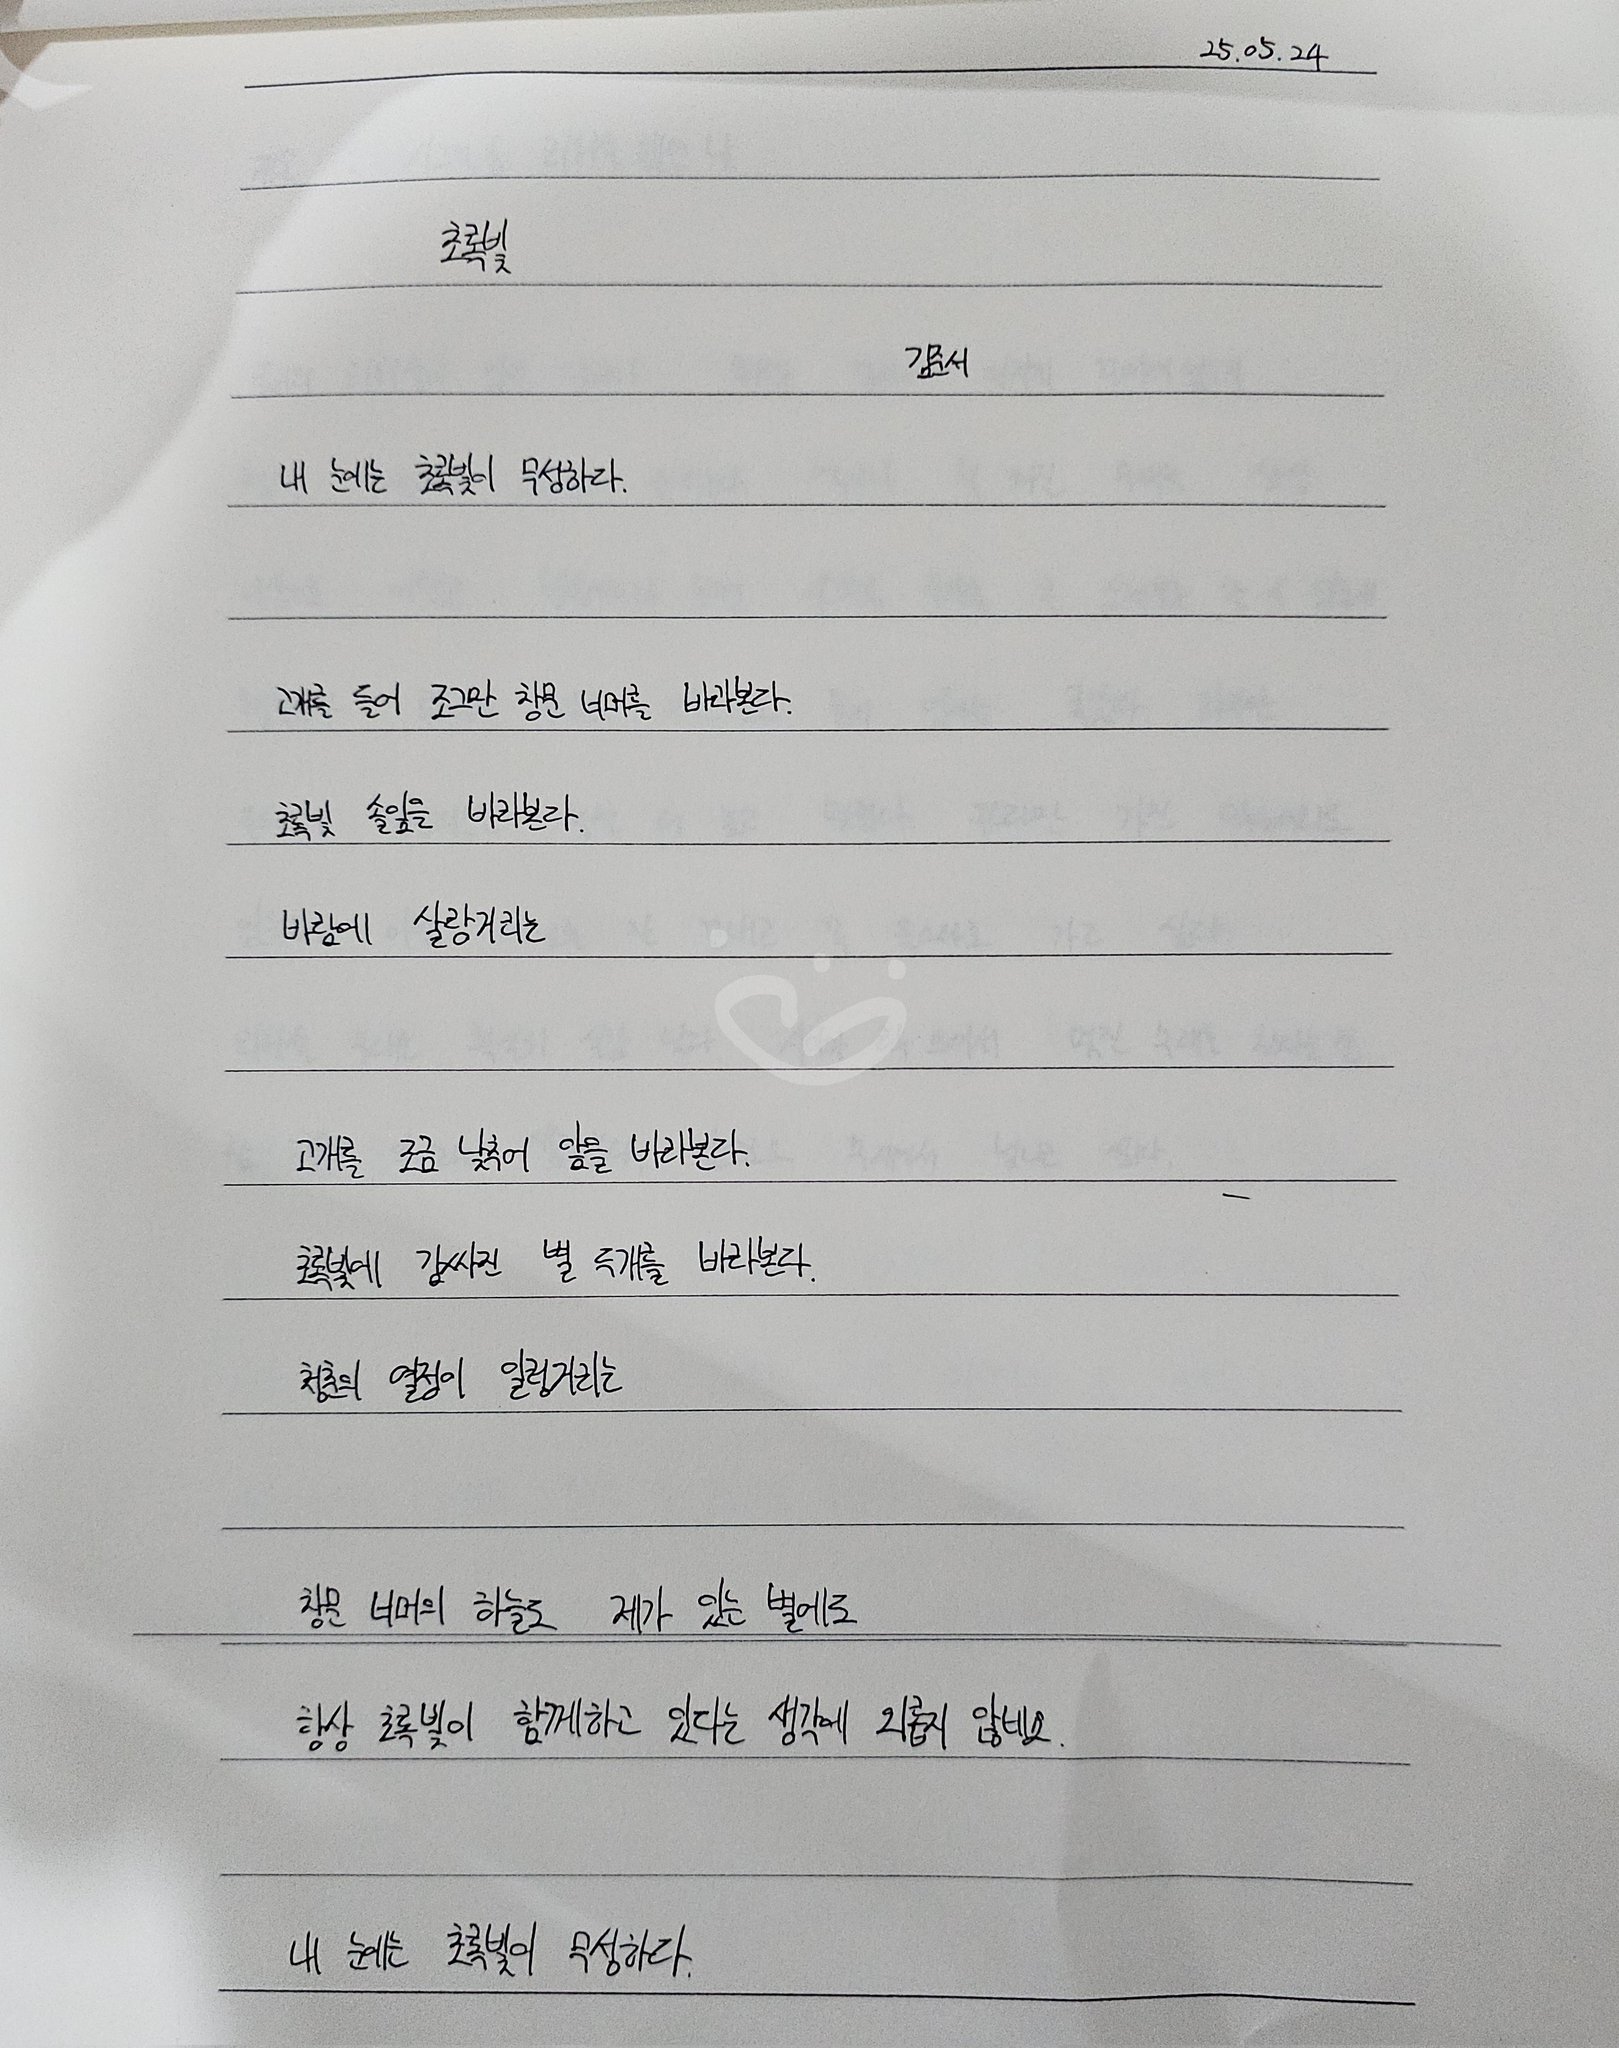 25.05.24
초록빛
김준서
내 눈에는 초록빛이 무성하다.
고개를 들어 조그만 창문 너머를 바라본다.
초록빛 솔잎을 바라본다.
바람에 살랑거리는
고개를 조금 낮추어 앞을 바라본다.
초록빛에 감싸진 별 두개를 바라본다.
청춘의 열정이 일렁거리는
창문 너머의 하늘도 제가 있는 별에로
항상 초록빛이 함께하고 있다는 생각에 외롭지 않네요.
내 눈에는 초록빛이 무성하다.